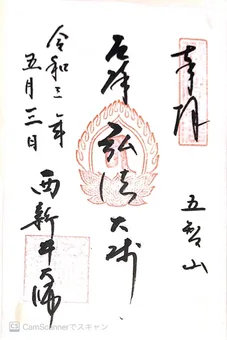 奉拝
五智山
厄除 弘法大師
西新井大師
令和三年
五月三日
CS CamScannerでスキャン